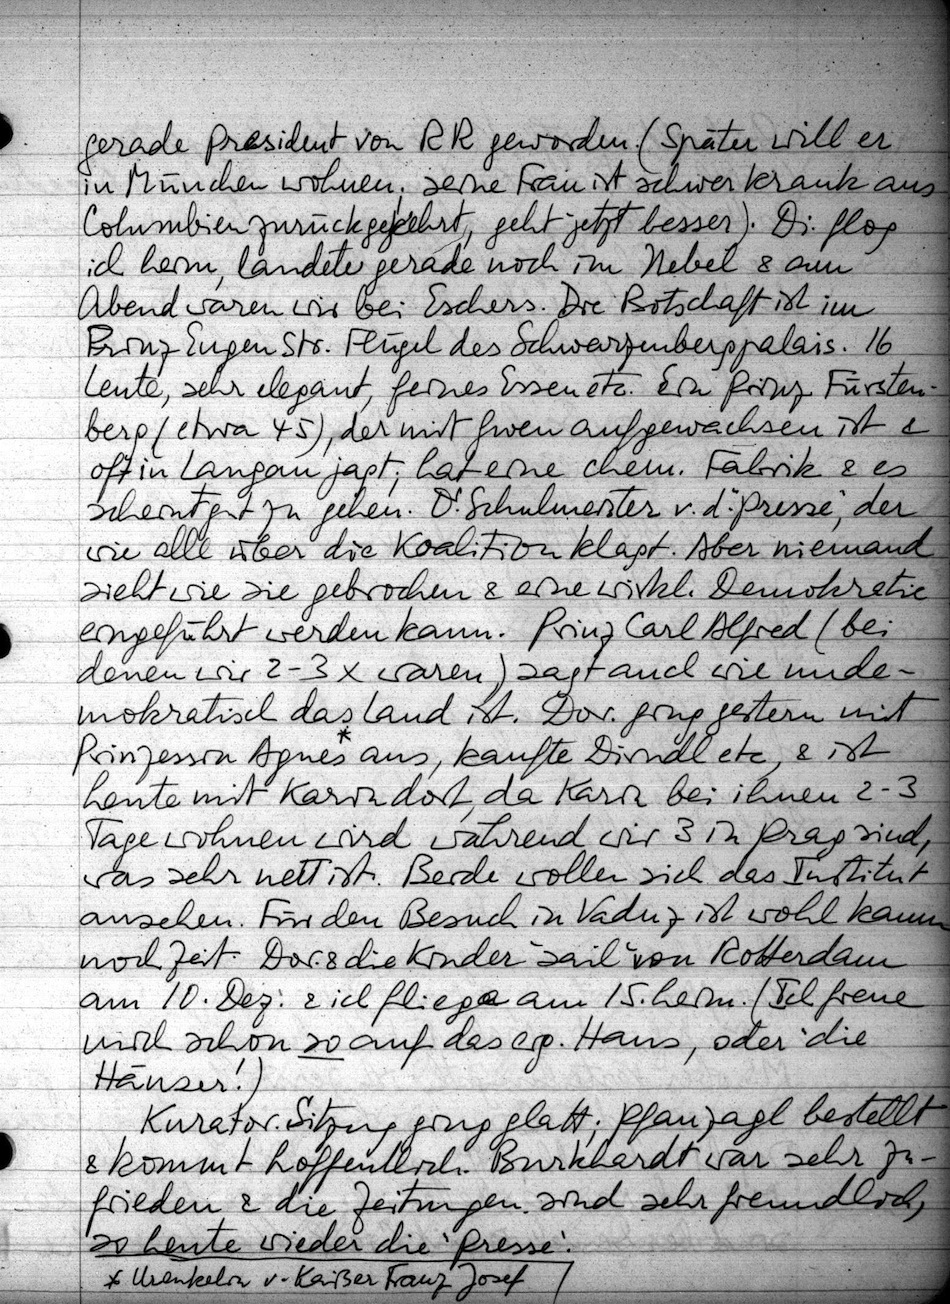 gerade President von RR geworden. (Später will er
in München wohnen. seine Frau ist schwer krank aus
Columbien zurückgekehrt, geht jetzt besser). Di. flog
ich heim, landete gerade noch im Nebel & am
Abend waren wir bei Eschers. Die Botschaft ist im
Prinz Eugen Str. Flügel des Schwarzenbergpalais. 16
Leute, sehr elegant, feines Essen etc. Ein Prinz Fürsten-
berg (etwa 45), der mit Gwen aufgewachsen ist &
oft in Langau jagt; hat eine chem. Fabrik & es
scheint gut zu gehen. D. Schulmeister v. d. "Presse", der
wie alle über die Koalition klagt. Aber niemand
sieht wie sie gebrochen & eine wirkl. Demokratie
eingeführt werden kann. Prinz Carl Alfred (bei
denen wir 2-3 x waren) sagt auch wie unde-
mokratisch das Land ist. Dor. ging gestern mit
Prinzessin Agnes* aus, kaufte Dirndl etc, & ist
heute mit Karin dort, da Karin bei ihnen 2-3
Tage wohnen wird während wir 3 in Prag sind,
was sehr nett ist. Beide wollen sich das Institut
ansehen. Für den Besuch in Vaduz ist wohl kaum
noch Zeit. Dor. & die Kinder "sail" von Rotterdam
am 10. Dez. & ich fliege am 15. heim. (Ich freue
mich schon so auf das eig. Haus, oder 'die
Häuser'!)
Kurator. Sitzung ging glatt; Pfanzagl bestellt
& kommt hoffentlich. Burkhardt war sehr zu-
frieden & die Zeitungen sind sehr freundlich,
so heute wieder die 'Presse'.
* Urenkelin v. Kaißer Franz Josef